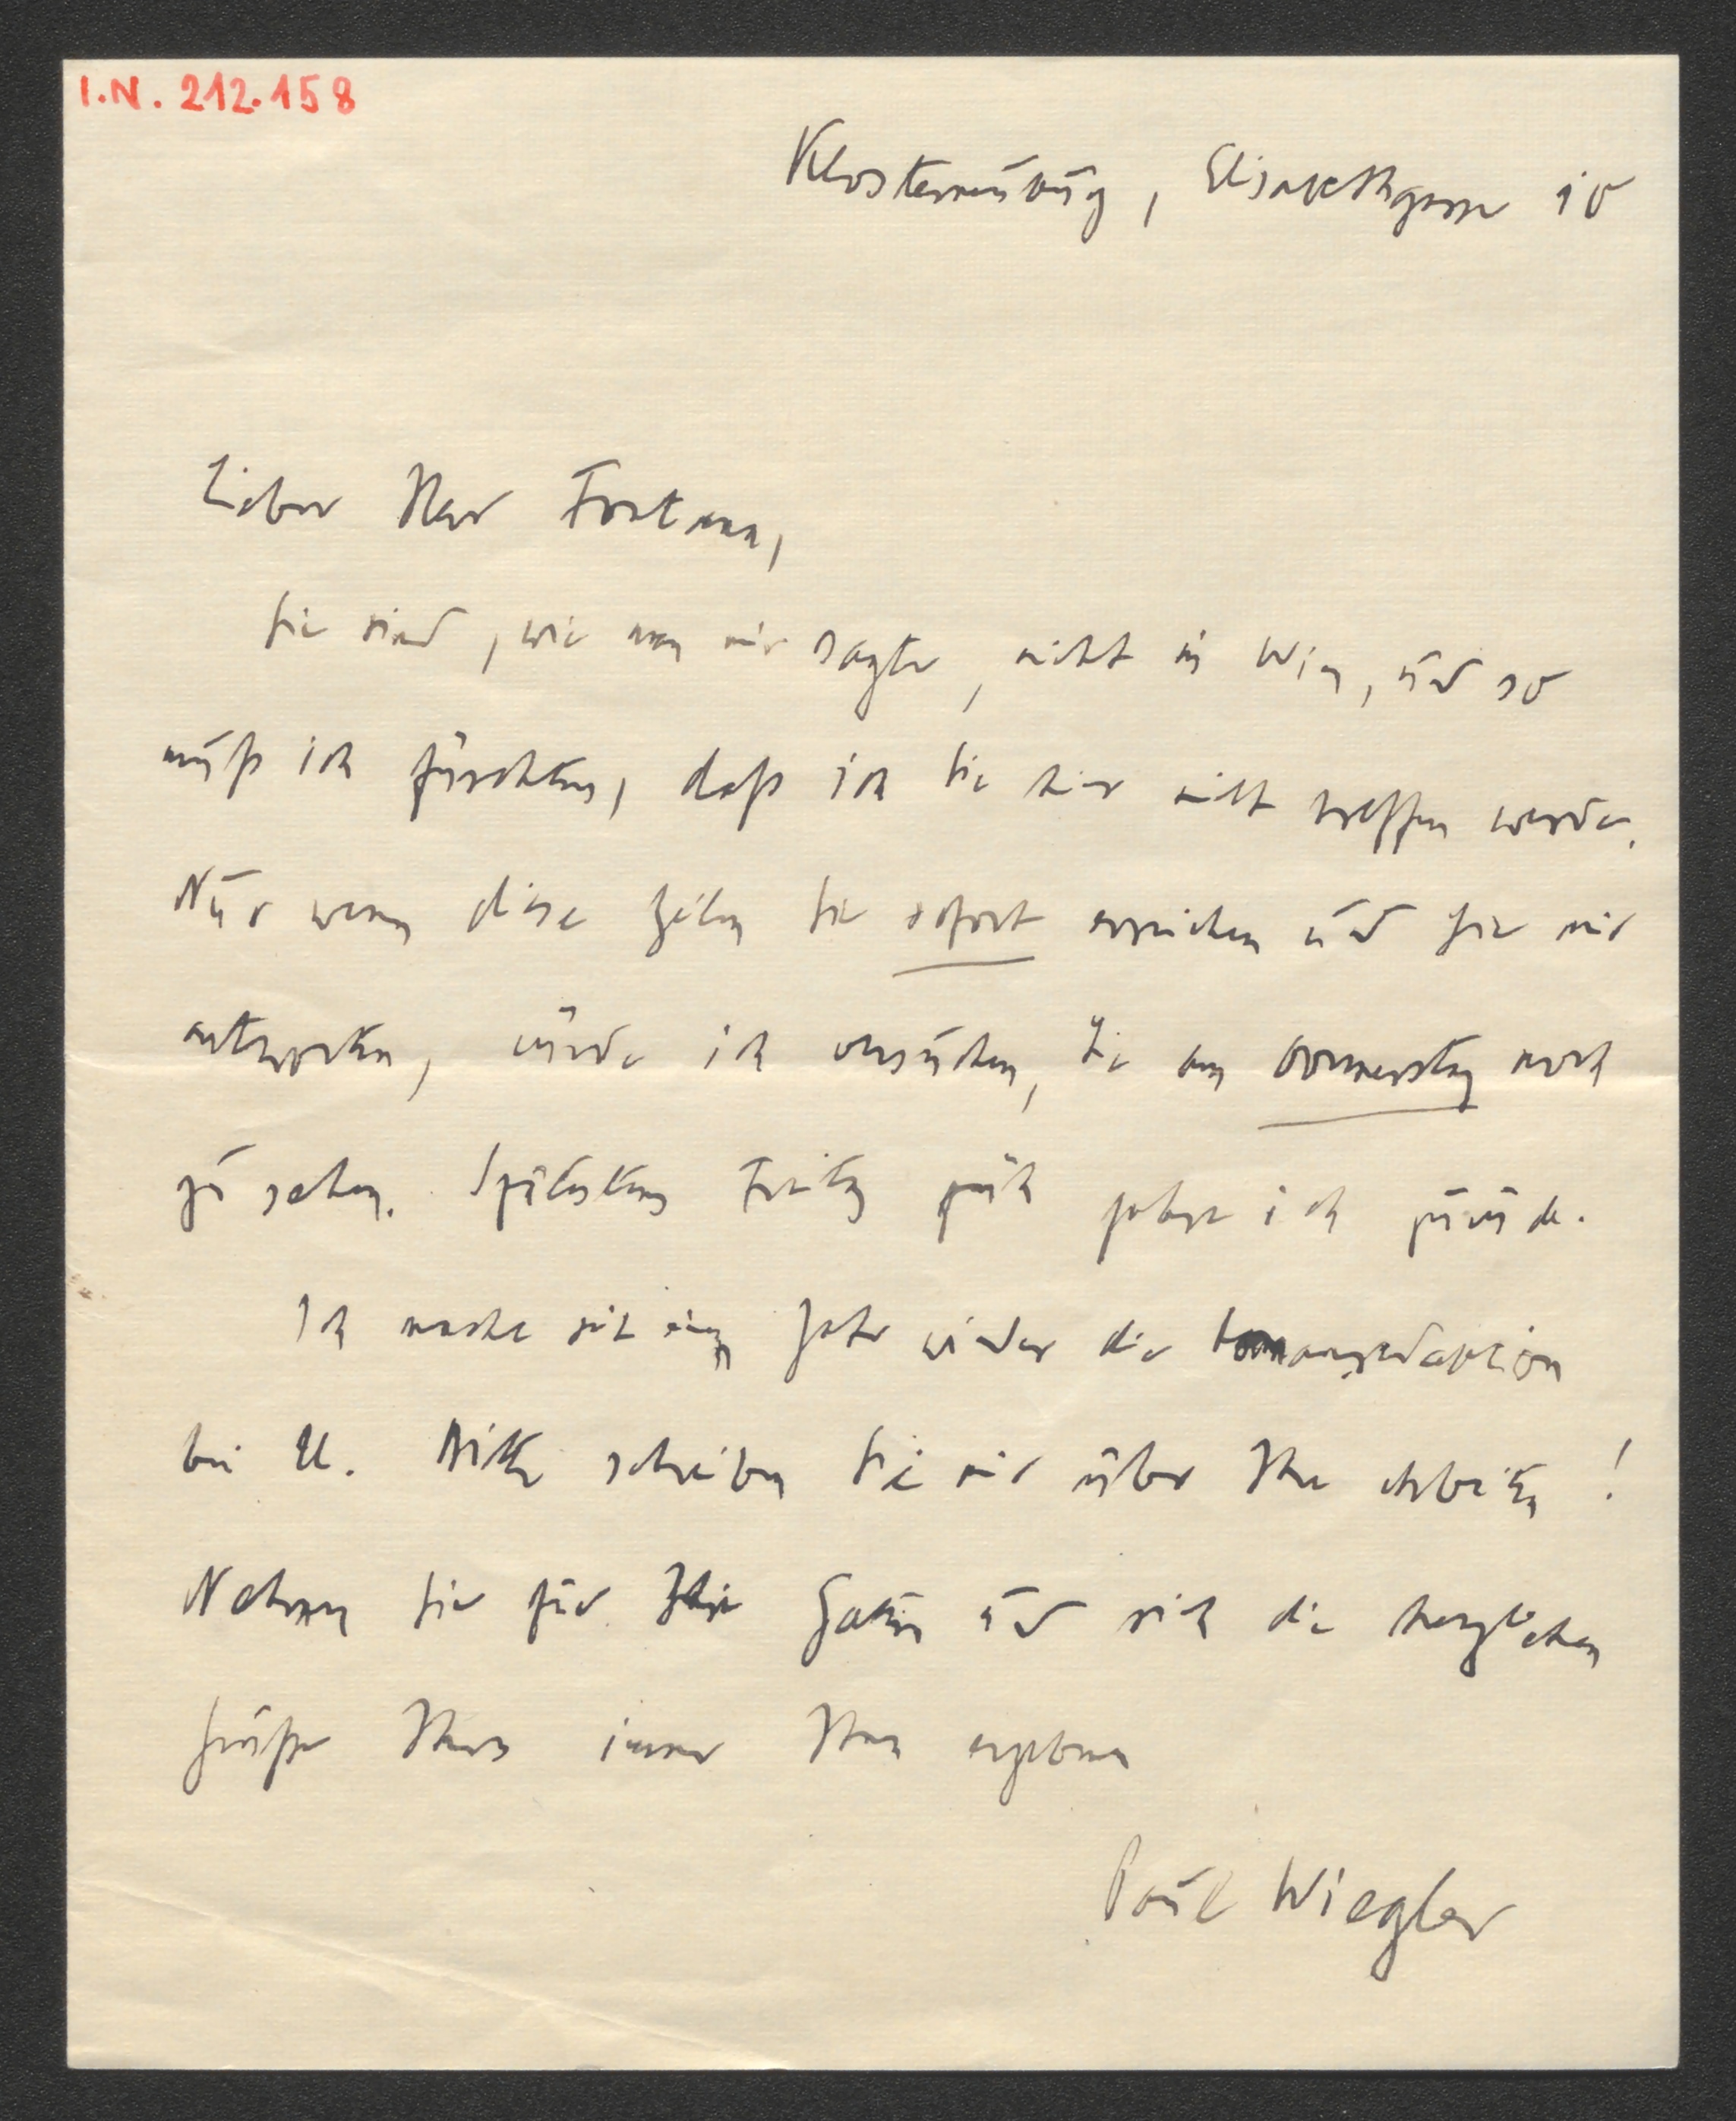 I.N. 212.158
Klosterneuburg, Elisabethgasse 10
Lieber Herr Fontana,
Sie sind, wie man mir sagte, nicht in Wien, und so
muß ich fürchten, daß ich Sie hier nicht treffen werde.
Nur wenn diese Zeilen Sie sofort erreichen und Sie mir
antworten, würde ich versuchen, Sie am Donnerstag noch
zu sehen. Spätestens Freitag früh fahre ich zurück.
Ich mache seit einem Jahr wieder die Romanredaktion
bei U. Bitte schreiben Sie mir über Ihre Arbeiten!
Nehmen Sie für Ihre Gattin und sich die herzlichen
Grüße Ihres immer Ihnen ergebenen
Paul Wiegler